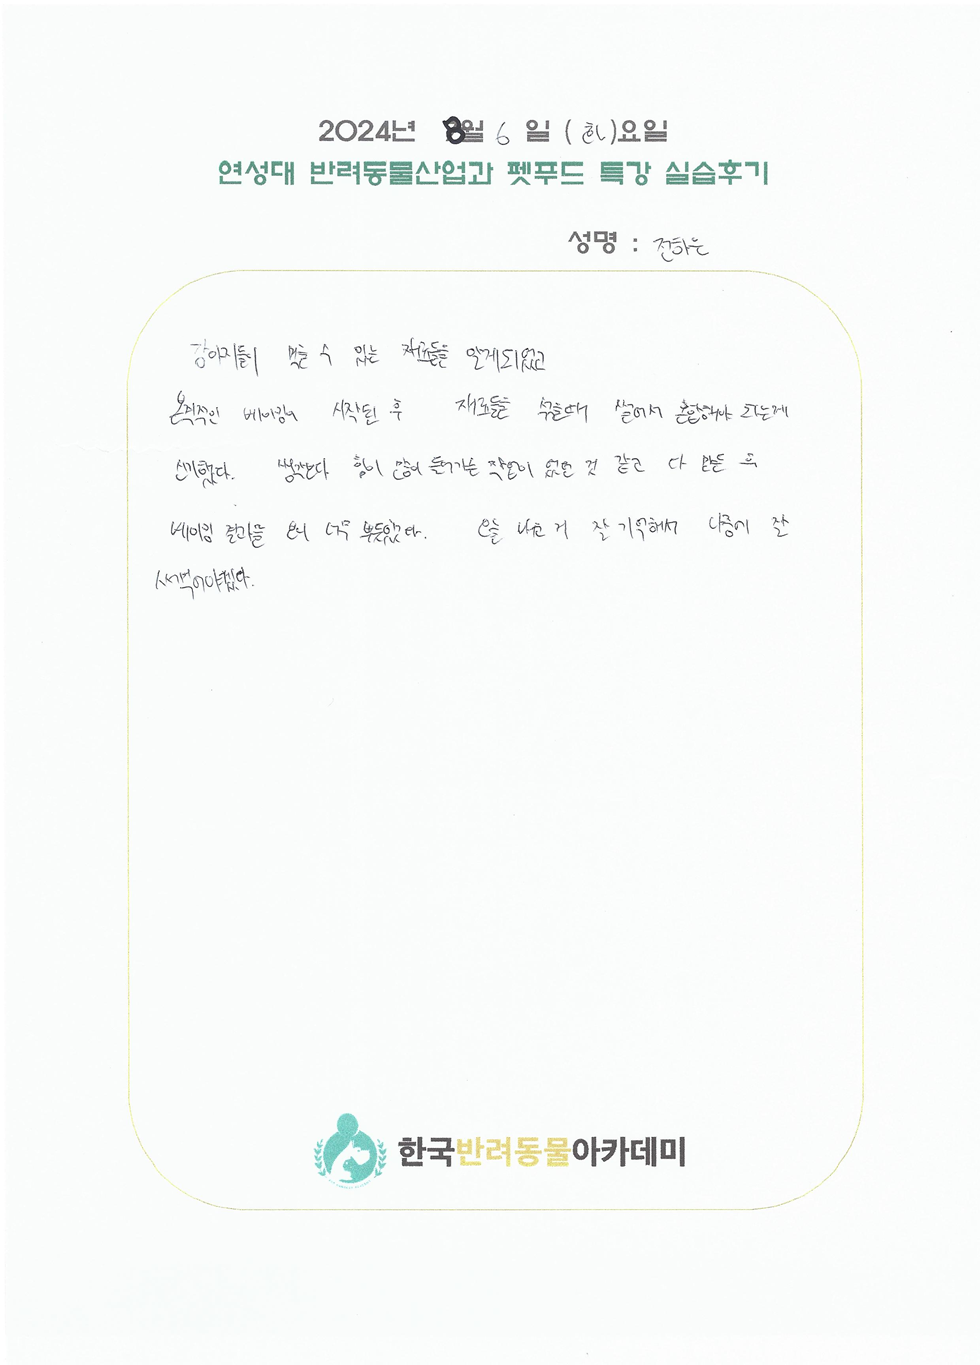 2024년 8월 6일 (화)요일
연성대 반려동물산업과 펫푸드 특강 실습후기
성명 : 전하은
강아지들이 먹을 수 있는 재료들을 알게되었고
본격적인 베이킹이 시작된 후 재료들을 섞을때 썰어서 혼합해야 되는게
신기했다. 생각보다 힘이 많이 들어가는 작업이 었던 것 같고 다 만든 후
베이킹 결과를 보니 너무 뿌듯했다. 오늘 배운 거 잘 기억해서 나중에 잘
써먹어야겠다.
한국반려동물아카데미